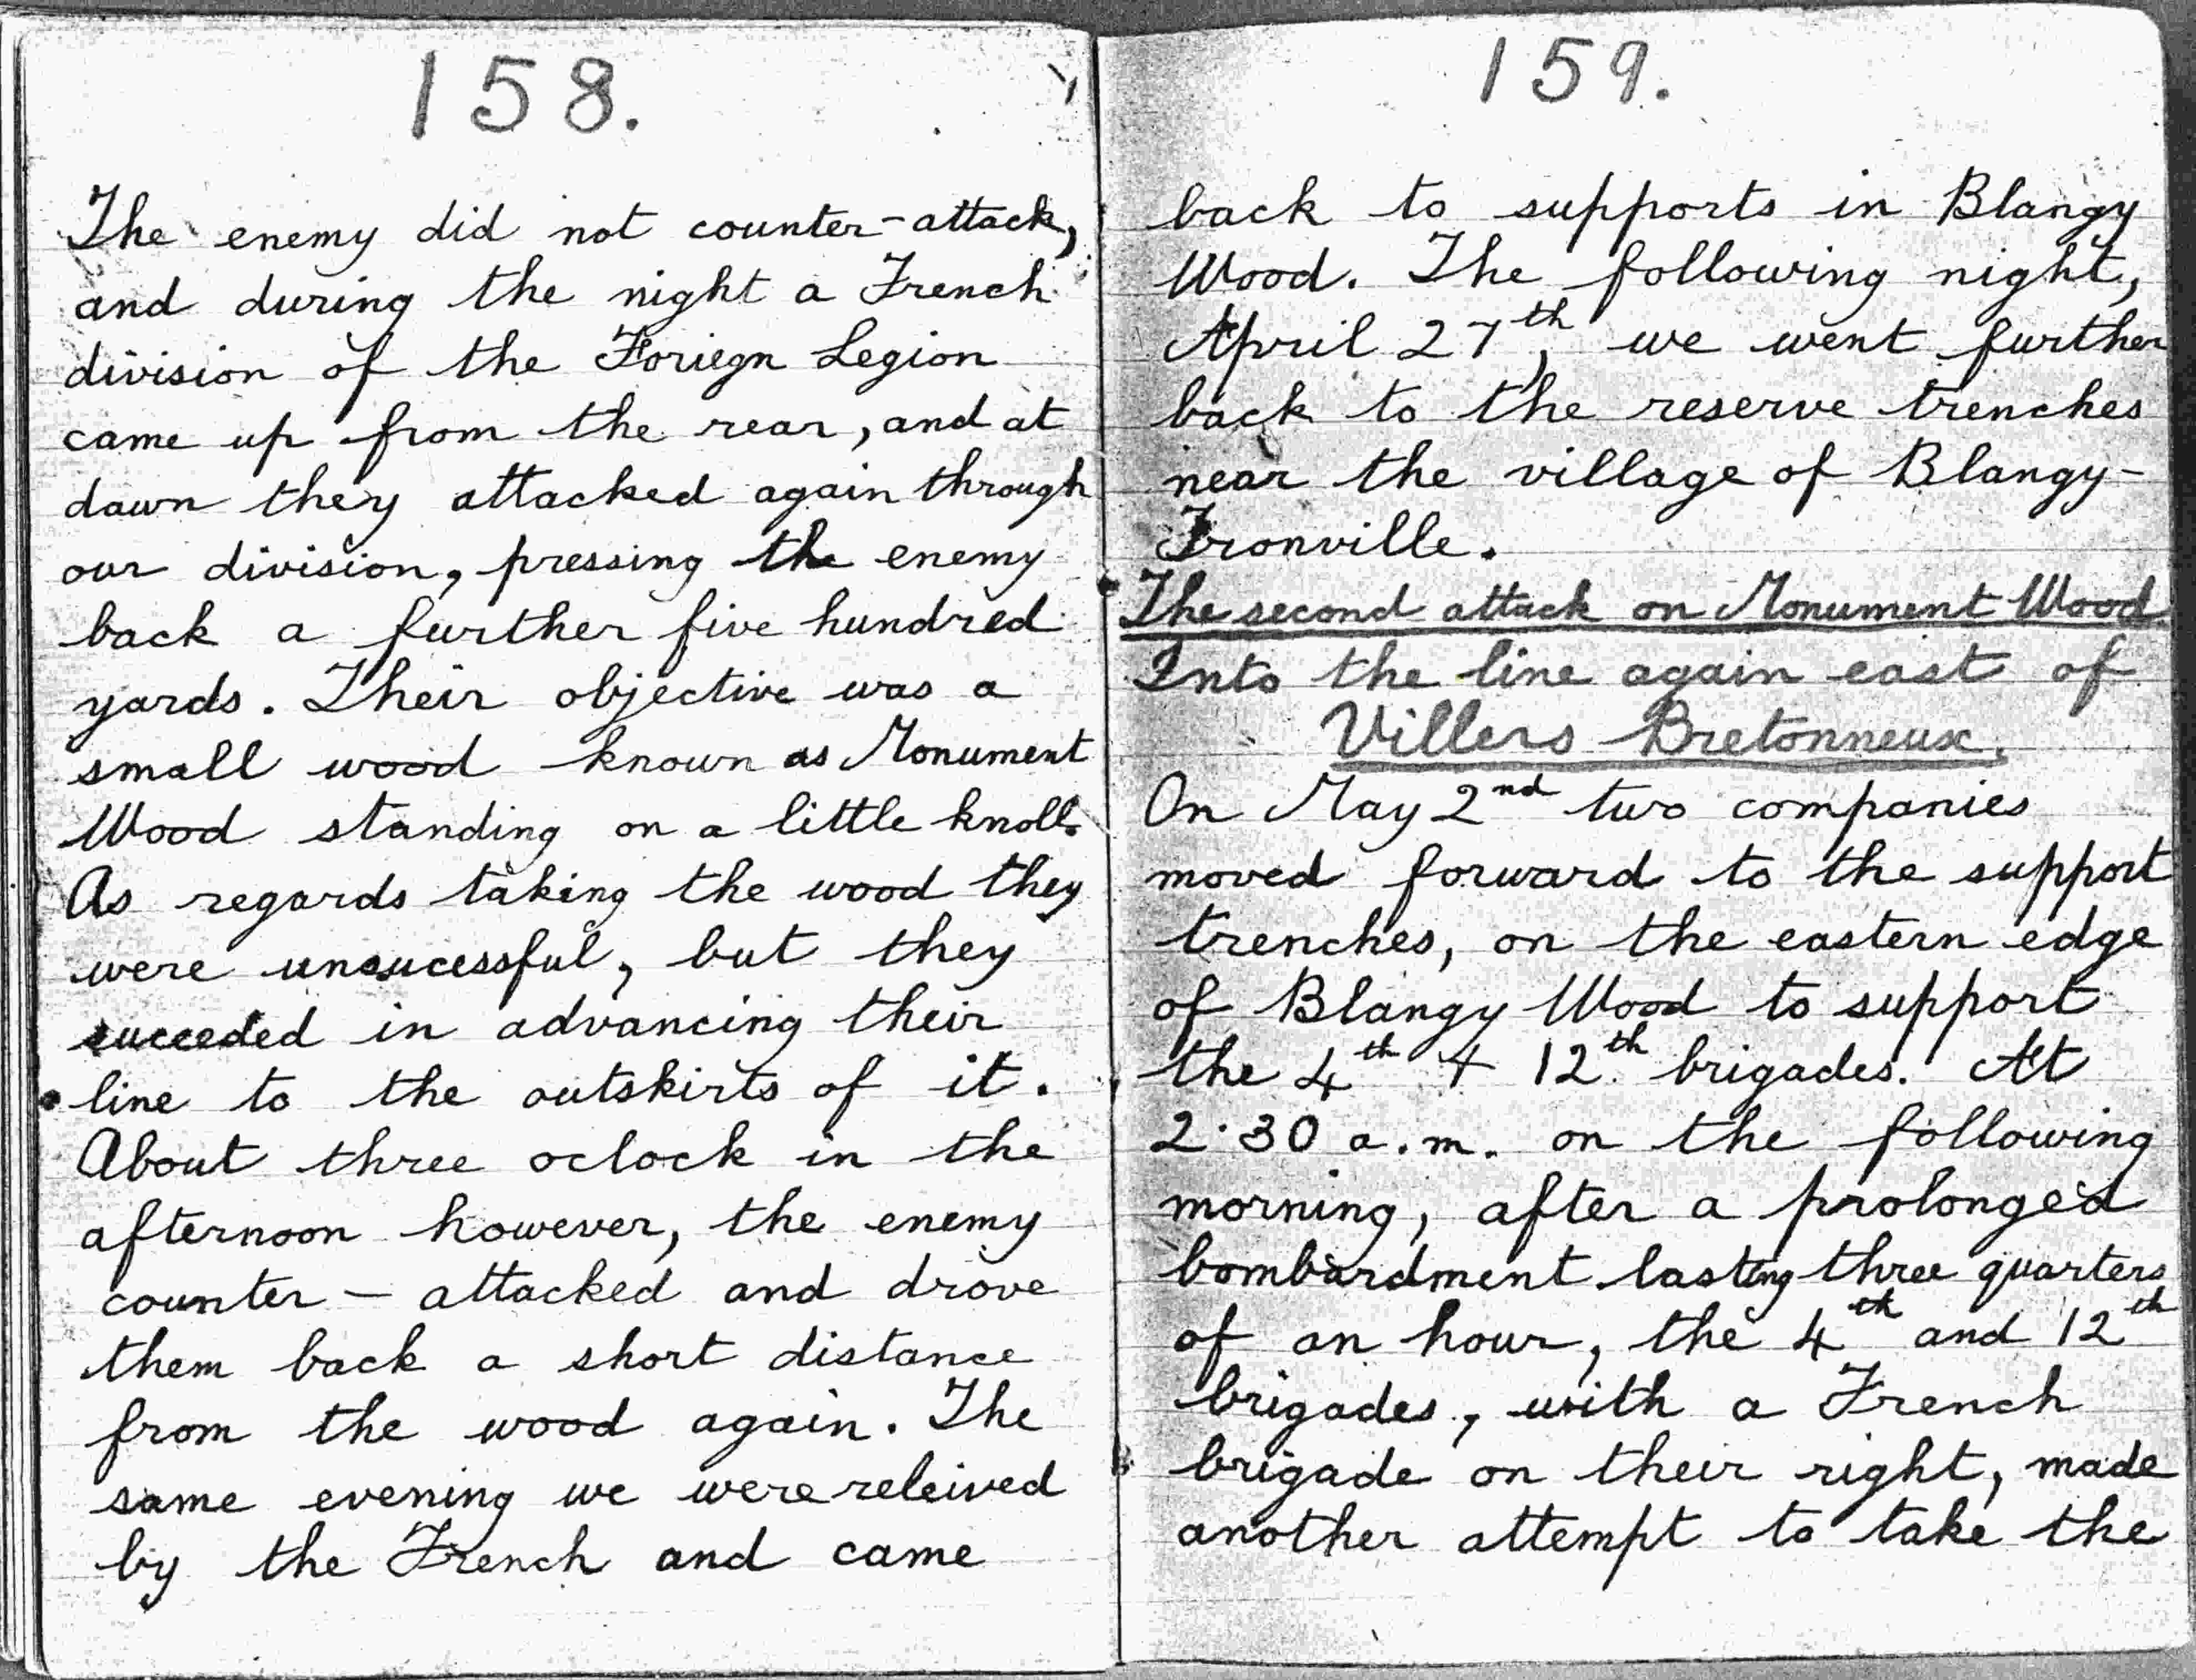 158.
The enemy did not counter-attack,
and during the night a French
division of the Foriegn Legion
came up from the rear, and at
dawn they attacked again through
our division, pressing the enemy
back a further five hundred
yards. Their objective was a
small wood known as Monument
Wood standing on a little knoll.
As regards taking the wood they
were unsucessful, but they
succeeded in advancing their
line to the outskirts of it.
About three oclock in the
afternoon however, the enemy
counter - attacked and drove
them back a short distance
from the wood again. The
same evening we were releived
by the French and came
159.
back to supports in Blangy
Wood. The following night,
April 27th, we went further
back to the reserve trenches
near the village of Blangy-
Tronville.
The second attack on Monument Wood.
Into the line again east of
Villers Bretonneux.
On May 2nd two companies
moved forward to the support
trenches, on the eastern edge
of Blangy Wood to support
the 4th + 12th brigades. At
2.30 a.m. on the following
morning, after a prolonged
bombardment lasting three quarters
of an hour, the 4th and 12th
brigades, with a French
brigade on their right, made
another attempt to take the